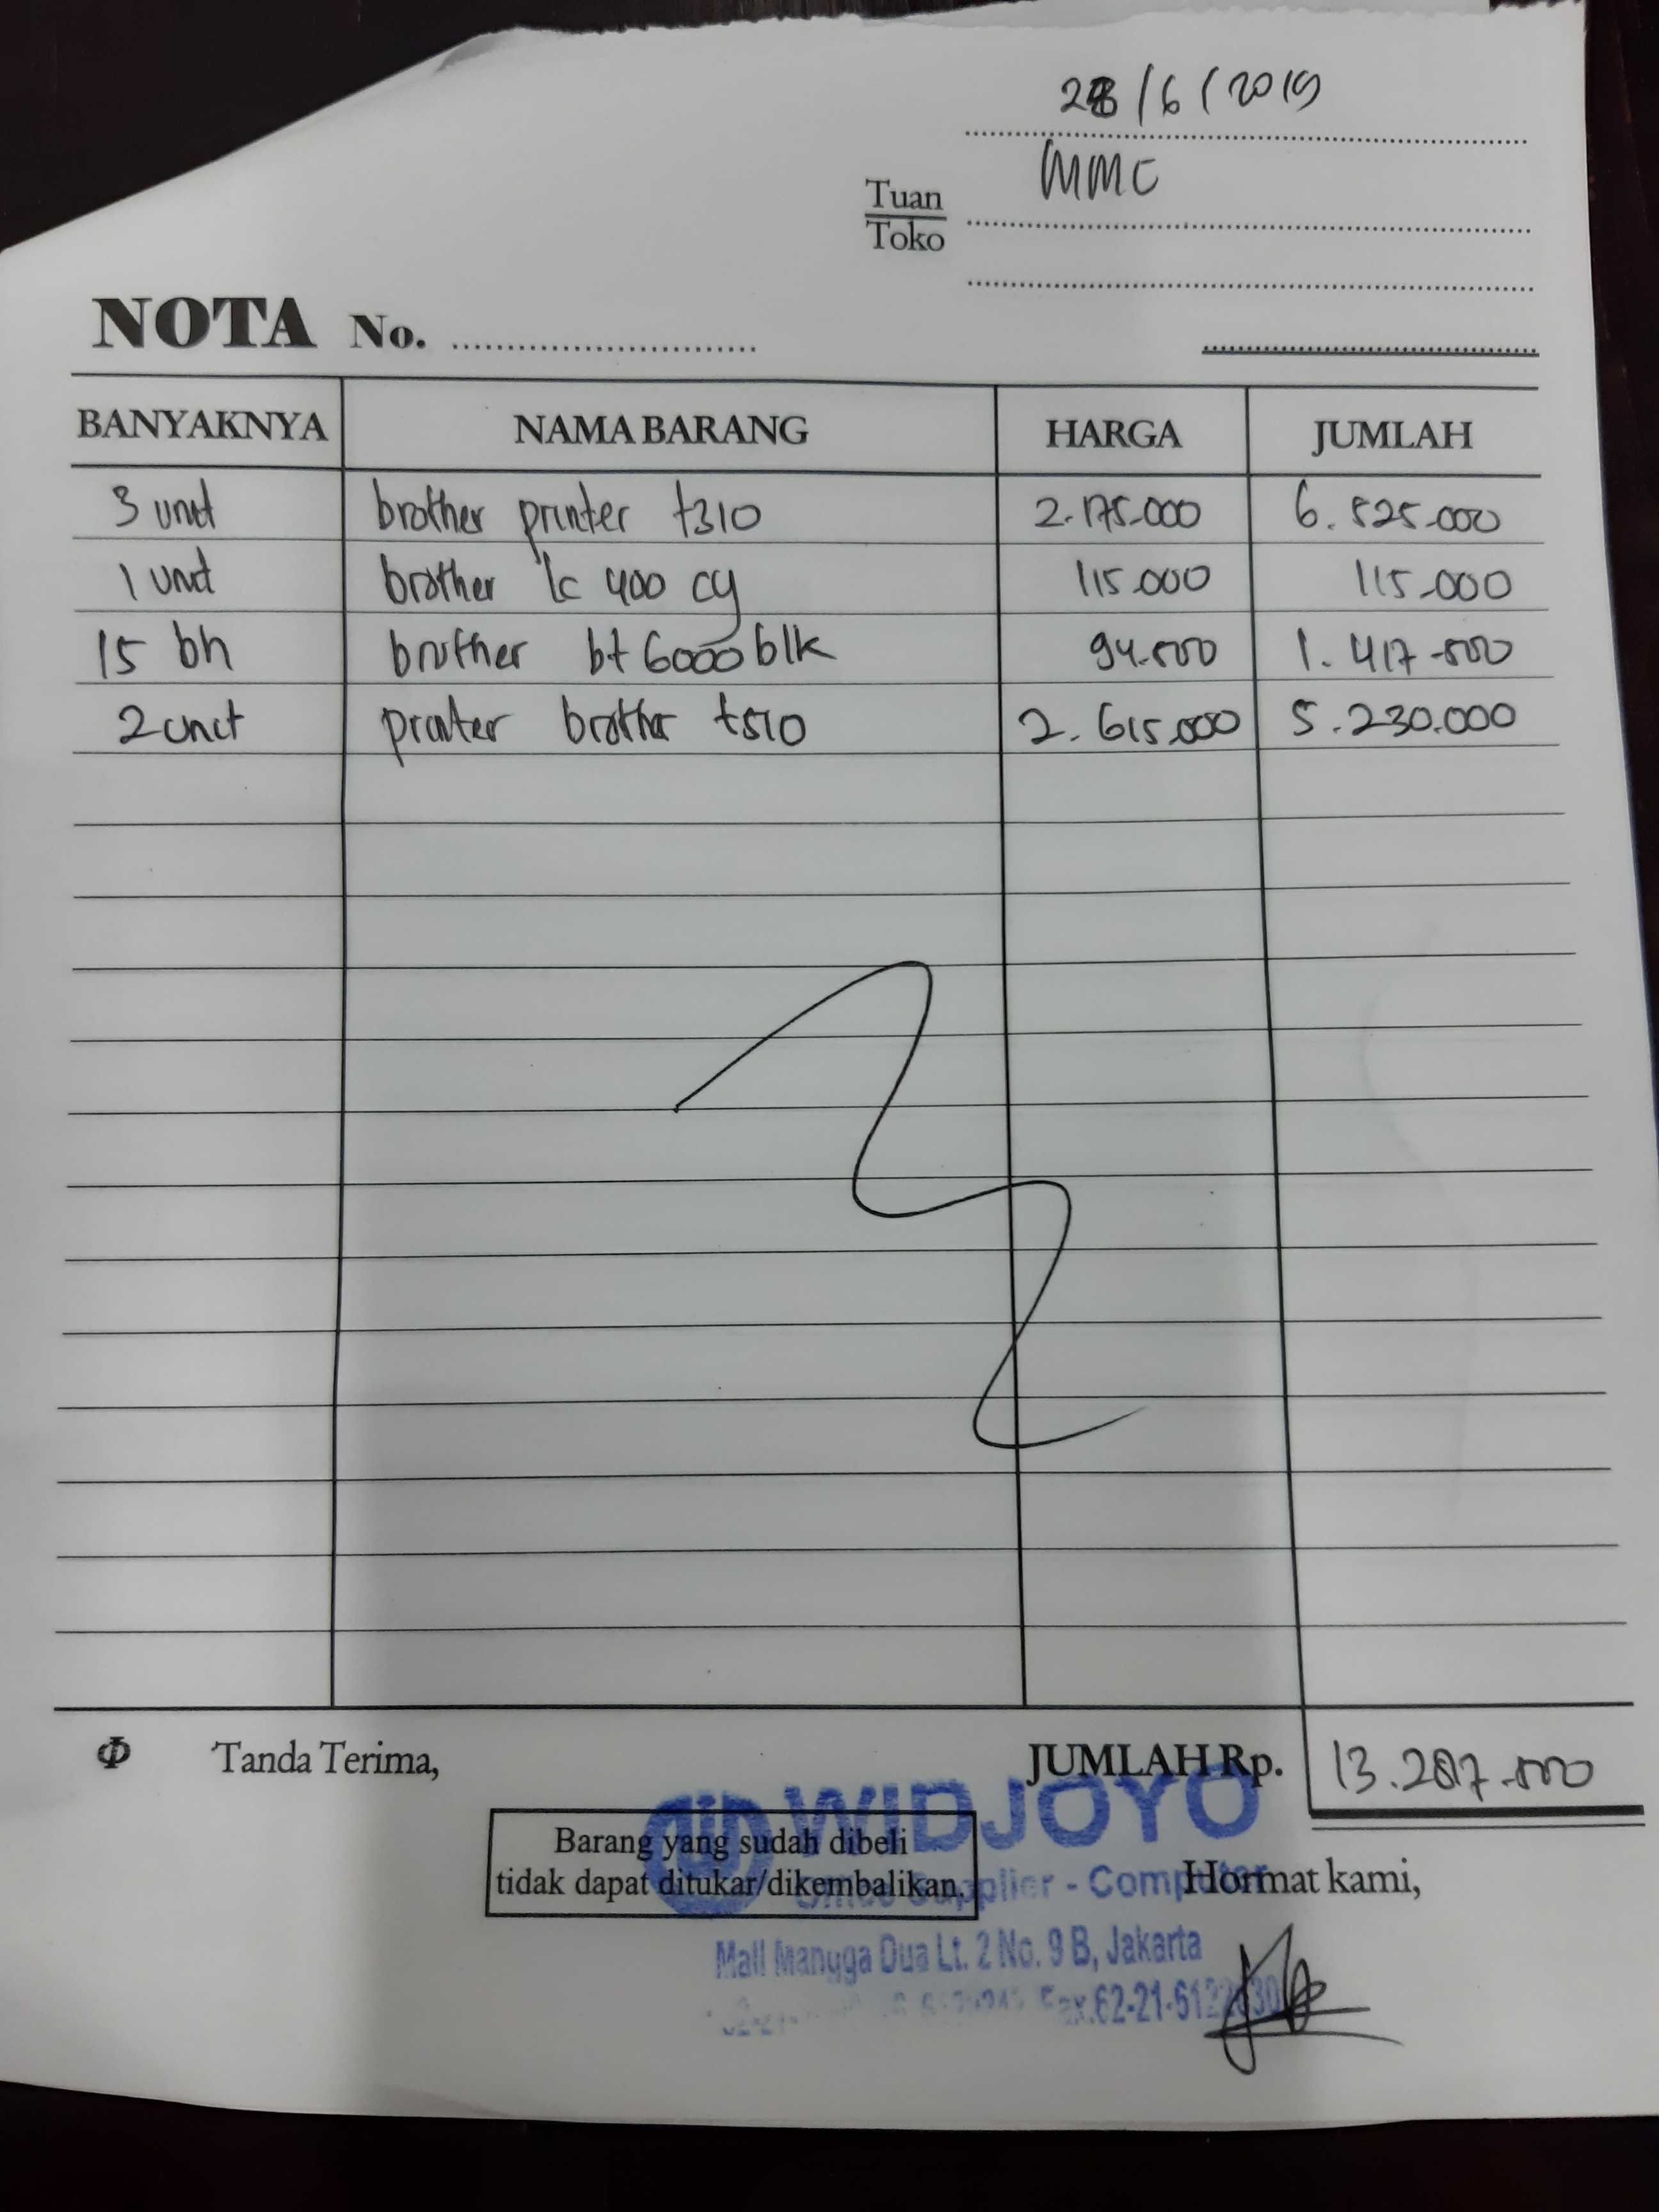 28/6/2019
MMC
Tuan
Toko
NOTA No.
BANYAKNYA NAMA BARANG HARGA JUMLAH
3 unit brother printer t310 2.175.000 6.525.000
1 unit brother lc 400 cy 115.000 115.000
15 bh brother bt 6000 blk 94.500 1.417.500
2 unit printer brother t510 2.615.000 5.230.000
Tanda Terima, JUMLAH Rp. 13.287.500
WIDJOYO
Barang yang sudah dibeli
tidak dapat ditukar/dikembalikan.
Office Supplier - Computer
Hormat kami,
Mall Mangga Dua Lt. 2 No. 9 B, Jakarta
Fax.62-21-612